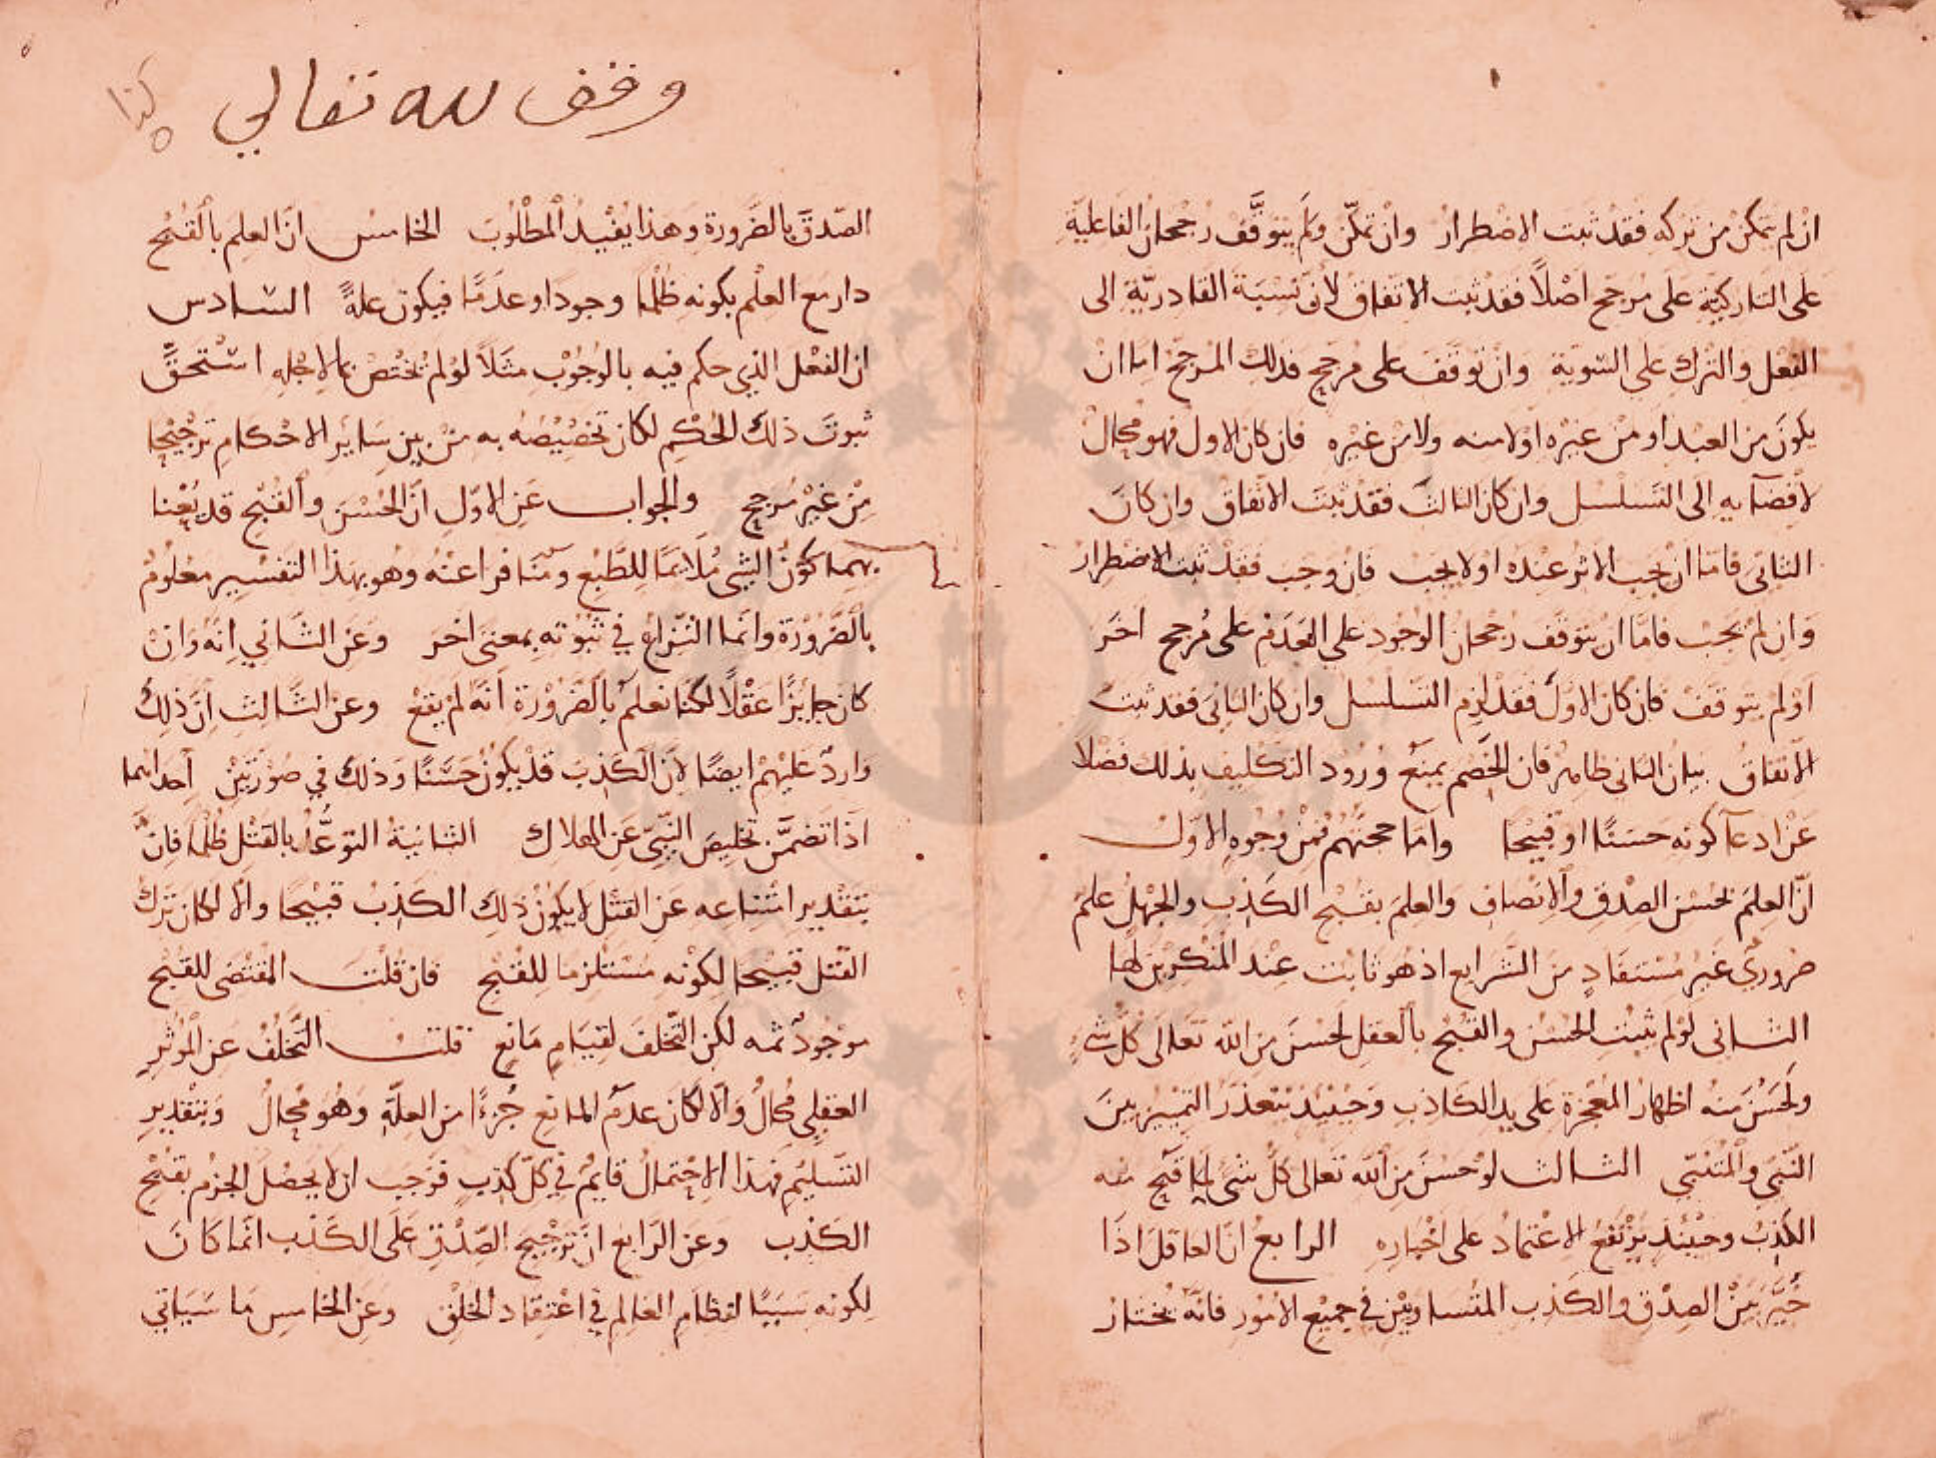 ان لم يتمكن من تركه فقد ثبت الاضطرار وان تمكن ولم يتوقف رجحان الفاعلية
على التاركية على مرجح اصلا فقد ثبت الاتفاق لان نسبة القادرية الى
الفعل والترك على السوية وان توقف على مرجح فذلك المرجح اما ان
يكون من العبد او من غيره او لا منه ولا من غيره فان كان الاول فهو محال
لافضايه الى التسلسل وان كان الثالث فقد ثبت الاتفاق وان كان
الثاني فاما ان يجب الاثر عنده او لا يجب فان وجب فقد ثبت الاضطرار
وان لم يجب فاما ان يتوقف رجحان الوجود على العدم على مرجح اخر
او لم يتوقف فان كان الاول فقد لزم التسلسل وان كان الثاني فقد ثبت
الاتفاق بيان الثاني ظاهر فان الخصم يمنع ورود التكليف بذلك فضلا
عن ادعا كونه حسنا او قبيحا واما حجتهم فمن وجوه الاول
ان العلم بحسن الصدق والانصاف والعلم بقبح الكذب والجهل علم
ضروري غير مستفاد من الشرايع اذ هو ثابت عند المنكرين لها
الثاني لو لم يثبت الحسن والقبح بالعقل لحسن من الله تعالى كل شي
ولحسن منه اظهار المعجزة على يد الكاذب وحينيذ يتعذر التمييز بين
النبي والمتنبي الثالث لو حسن من الله تعالى كل شي لما قبح منه
الكذب وحينيذ يرتفع الاعتماد على اخباره الرابع ان العاقل اذا
خير بين الصدق والكذب المتساويين في جميع الامور فانه يختار
وقف لله تعالى
الصدق بالضرورة وهذا يفيد المطلوب الخامس ان العلم بالقبح
دار مع العلم بكونه ظلما وجودا وعدما فيكون علة السادس
ان الفعل الذي حكم فيه بالوجوب مثلا لو لم يختص بما لاجله استحق
ثبوت ذلك الحكم لكان تخصيصه به من بين ساير الاحكام ترجيحا
من غير مرجح والجواب عن الاول ان الحسن والقبح قد يعنا
بهما كون الشي ملايما للطبع ومنافرا عنه وهو بهذا التفسير معلوم
بالضرورة وانما النزاع في ثبوته بمعنى اخر وعن الثاني انه وان
كان جايزا عقلا لكنا نعلم بالضرورة انه لم يقع وعن الثالث ان ذلك
وارد عليهم ايضا لان الكذب قد يكون حسنا وذلك في صورتين احداهما
اذا تضمن تخليص النبي عن الهلاك الثانية التوعد بالقتل ظلما فان
بتقدير امتناعه عن القتل لا يكون ذلك الكذب قبيحا والا لكان ترك
القتل قبيحا لكونه مستلزما للقبح فان قلت المقتضى للقبح
موجود ثمه لكن التخلف لقيام مانع قلت التخلف عن الموثر
العقلي محال والا لكان عدم المانع جزءا من العلة وهو محال وبتقدير
التسليم فهذا الاحتمال قايم في كل كذب فوجب ان لا يحصل الجزم بقبح
الكذب وعن الرابع ان ترجيح الصدق على الكذب انما كان
لكونه سببا لنظام العالم في اعتقاد الخلق وعن الخامس ما سياتي